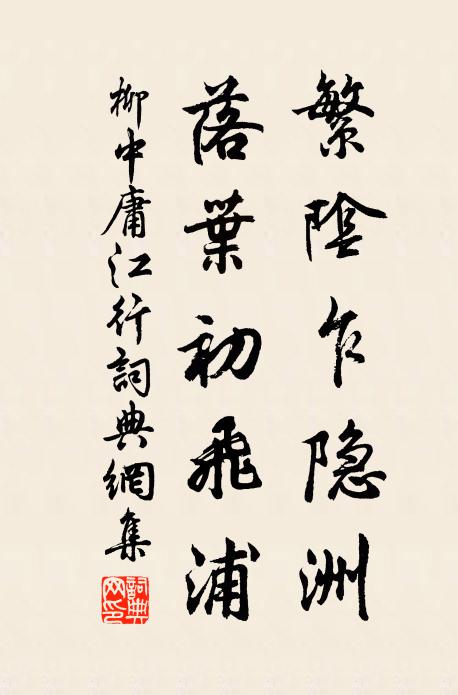 繁陰乍隐洲
落葉初飛浦
柳中庸江行詞典網集
詞典网印